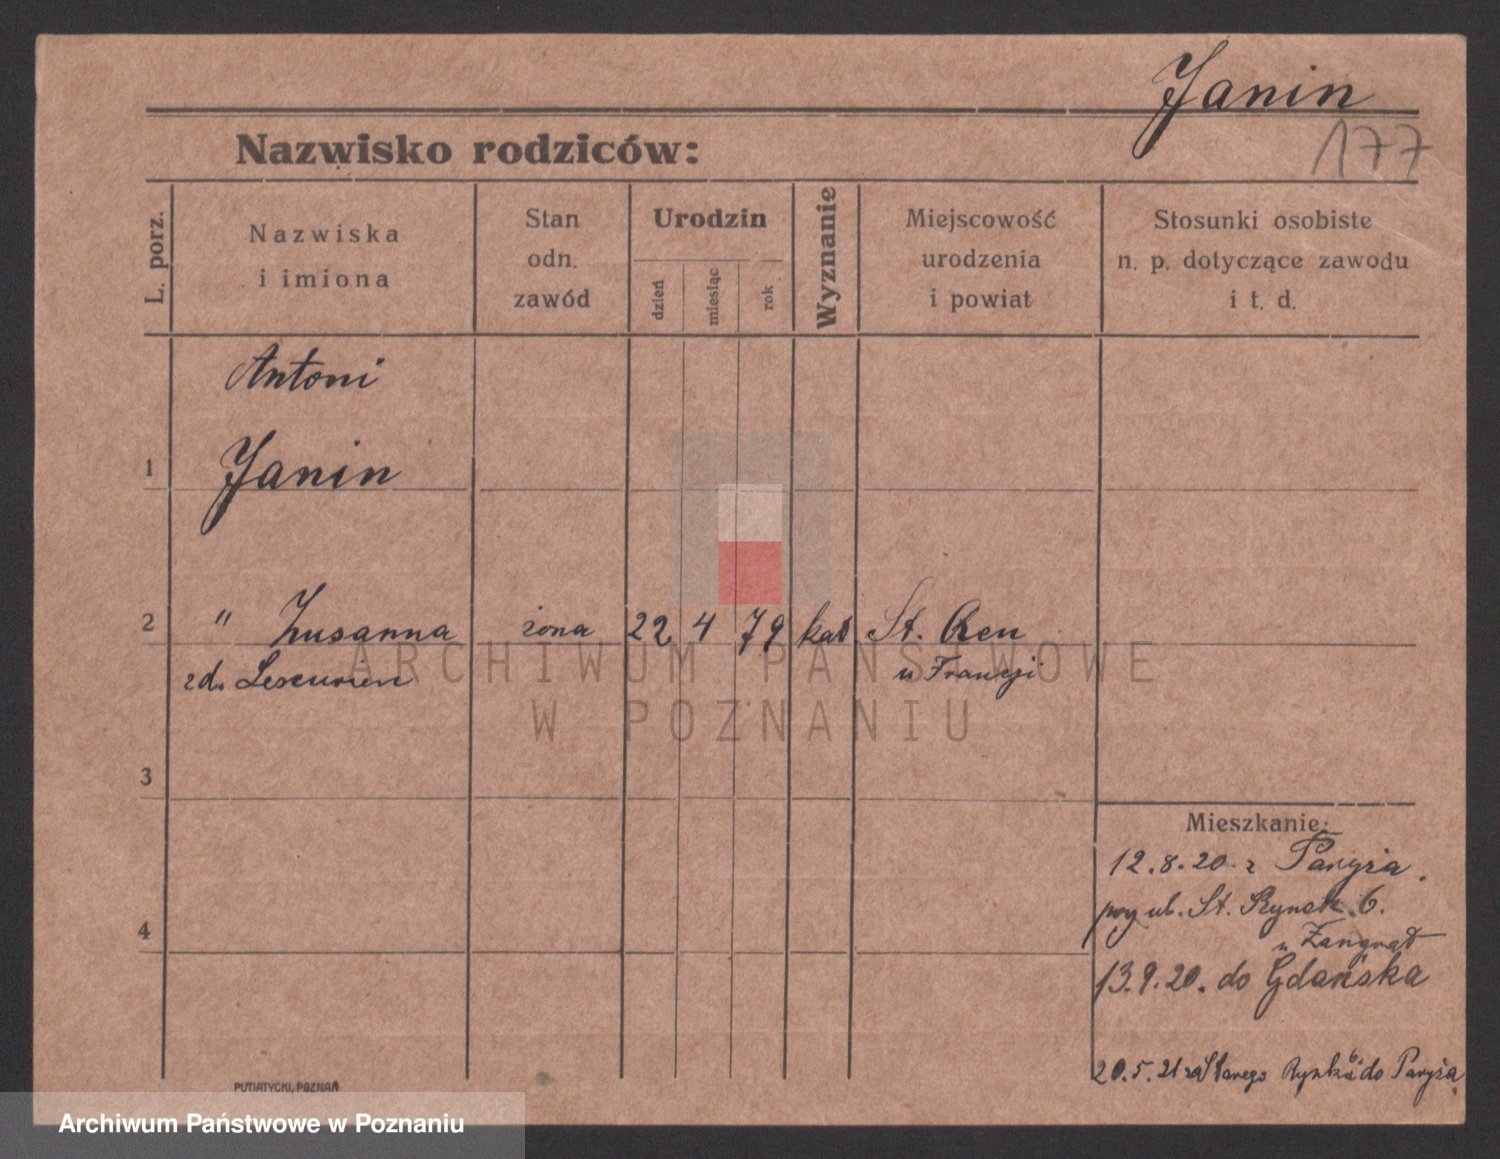 Janin
177
Nazwisko rodziców:
L. porz.
Nazwiska
i imiona
Stan
odn.
zawód
Urodzin
dzień
miesiąc
rok
Wyznanie
Miejscowość
urodzenia
i powiat
Stosunki osobiste
n. p. dotyczące zawodu
i t. d.
Antoni
1 Janin
2 " Zusanna żona 22 4 79 kat St. Ren
zd. w Francji
ARCHIWUM PAŃSTWOWE
W POZNANIU
3
Mieszkanie:
12.8.20 z Paryża.
przy ul. St. Rynek 6.
4
u
13.9.20. do Gdańska
20.5.21 za Starego Rynku 6 do Paryża
PUTIATYCKI, POZNAŃ
Archiwum Państwowe w Poznaniu